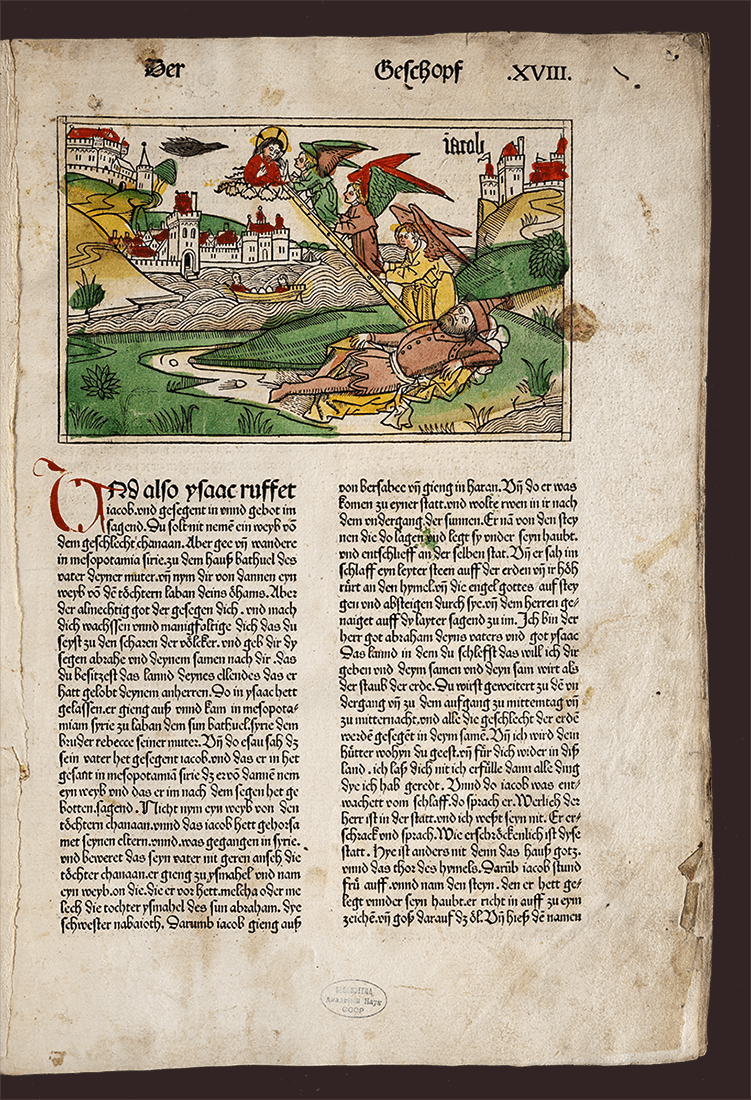 Der Geschopf .XVIII.
iacob
VNd also ysaac ruffet
iacob.vnd gesegent in vnnd gebot im
sagend. Du solt nit nemē ein weyb vō
dem geschlecht chanaan. Aber gee vn̄ wandere
in mesopotamia sirie.zu dem hauß bathuel des
vater deyner muter.vn̄ nym dir von dannen eyn
weyb vō dē töchtern laban deins öhams. Aber
der almechtig got der gesegen dich .vnd mach
dich wachssen vnnd manigfoltige dich das du
seyst zu den scharen der völcker.vnd geb dir dy
segen abrahe vnd deynem samen nach dir .das
du besitzest das lannd deynes ellendes das er
hatt gelobt deynem anherren. Do in ysaac hett
gelassen.er gieng auß vnnd kam in mesopota-
miam syrie zu laban dem sun bathuel.syrie dem
bruder rebecce seiner muter. Vn̄ do esau sah dz
sein vater het gesegent iacob.vnd das er in het
gesant in mesopotamiā sirie dz er vō dannē nem
eyn weyb vnd das er im nach dem segen het ge
botten.sagend. Nicht nym eyn weyb von den
töchtern chanaan.vnnd das iacob hett gehorsa
met seynen eltern.vnnd.was gegangen in syrie.
vnd beweret das seyn vater nit geren ansch die
töchter chanaan.er gieng zu ysmahel vnd nam
eyn weyb.on die.die er vor hett.melcha oder me
lech die tochter ysmahel des sun abraham. dye
schwester nabaioth. Darumb iacob gieng auß
von bersabee vn̄ gieng in haran. Vn̄ do er was
komen zu eyner statt.vnd wolte rwen in ir nach
dem vndergang der sunnen. Er nā von den stey
nen die do lagen vnd legt sy vnder seyn haubt.
vnd entschlieff an der selben stat. Vn̄ er sah im
schlaff eyn leyter steen auff der erden vn̄ ir höh
rürt an den hymel.vn̄ die engel gottes auf stey
gen vnd absteigen durch sye.vn̄ dem herren ge-
naiget auff dy layter sagend zu im. Ich bin der
herr got abraham deyns vaters vnd got ysaac
Das lannd in dem du schleffst das will ich dir
geben vnd deym samen vnd deyn sam wirt als
der staub der erde. Du würst geweitert zu dē vn
dergang vn̄ zu dem aufgang zu mittemtag vn̄
zu mitternacht.vnd alle die geschlecht der erdē
werdē gesegēt in deym samē. Vn̄ ich wird dein
hütter wohyn du geest.vn̄ für dich wider in diß
land .ich laß dich nit ich erfülle dann alle ding
dye ich hab geredt. Vnnd do iacob was ent-
wachett vom schlaff.do sprach er. Werlich der
herr ist in der statt.vnd ich weßt seyn nit. Er er-
schrack vnd sprach. Wie erschröckenlich ist dyse
statt . Hye ist anders nit denn das hauß gotz.
vnnd das thor des hymels. Darūb iacob stund
frü auff.vnnd nam den steyn .den er hett ge-
legt vnnder seyn haubt.er richt in auff zu eym
zeichē.vn̄ goß darauf dz öl. Vn̄ hieß dē namen
БИБЛИОТЕКА
Академии Наук
СССР